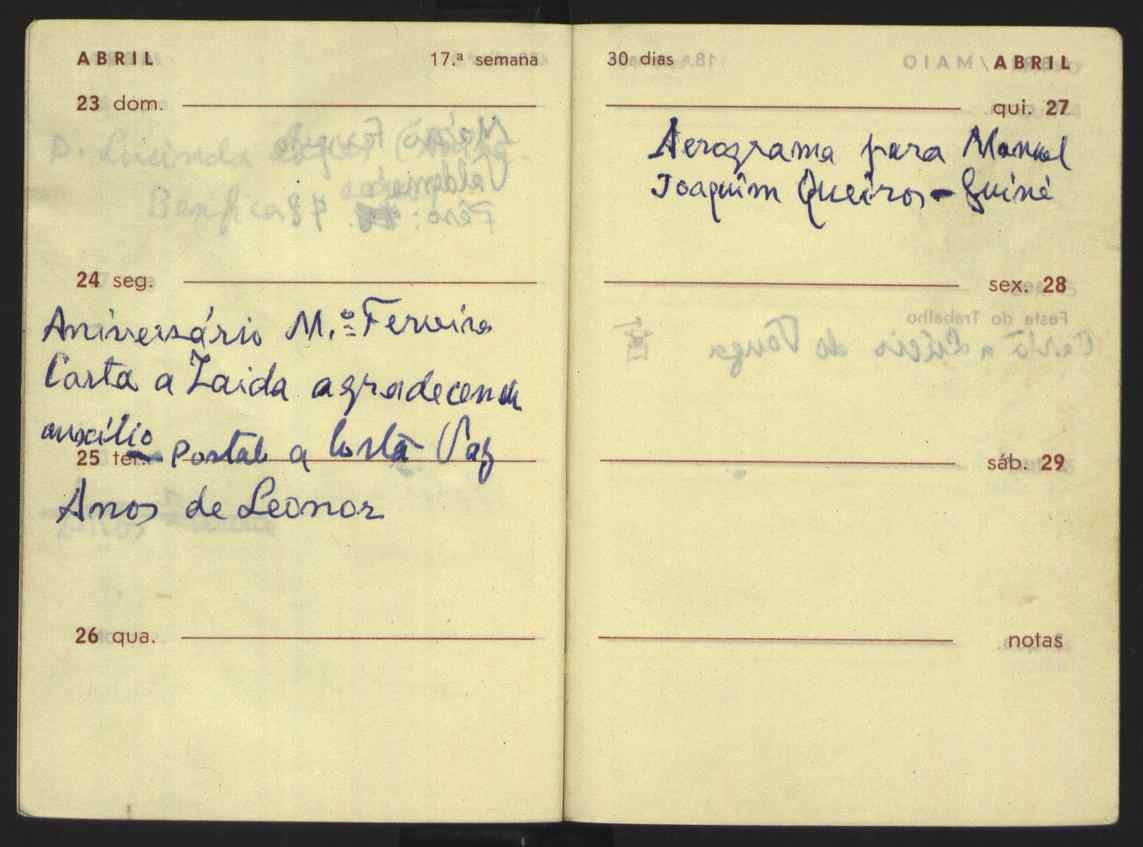 ABRIL 17.ª semana
23 dom.
24 seg.
Aniversário M.º Ferreira
Carta a Zaida agradecendo
auxílio
25 ter. Postal a Costa Vaz
Anos de Leonor
26 qua.
30 dias ABRIL
qui. 27
Aerograma para Manuel
Joaquim Queirós - Guiné
sex. 28
sáb. 29
notas